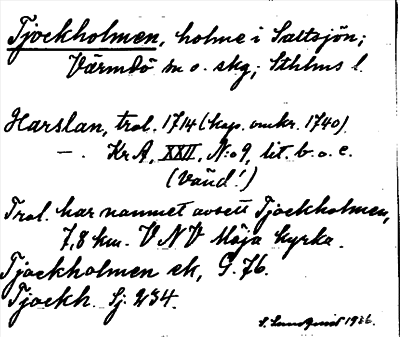 Tjockholmen, holme i Saltsjön;
Värmdö sn o. skg; Sthlms l.
Harslan, trol. 1714 (kop. omkr. 1740)
— . KrA, XXVI, N:o 9, lit. b. o. c.
(Vänd!)
Trol. har namnet avsett Tjockholmen,
7,8 km. VNV Möja kyrka.
Tjockholmen ek, G. 76.
Tjockh. Sj. 234.
S. Lundquist 1926.